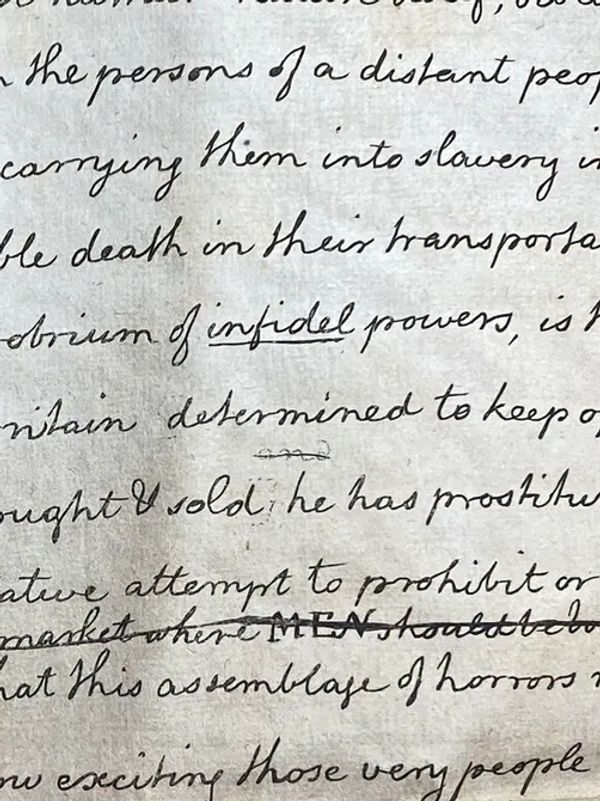 n the persons of a distant peop
carrying them into slavery in
ble death in their transporta
obrium of infidel powers, is t
ritain determined to keep op
and
ought & sold: he has prostitu
ative attempt to prohibit or
market where MEN should be bo
hat this assemblage of horrors
ow exciting those very people